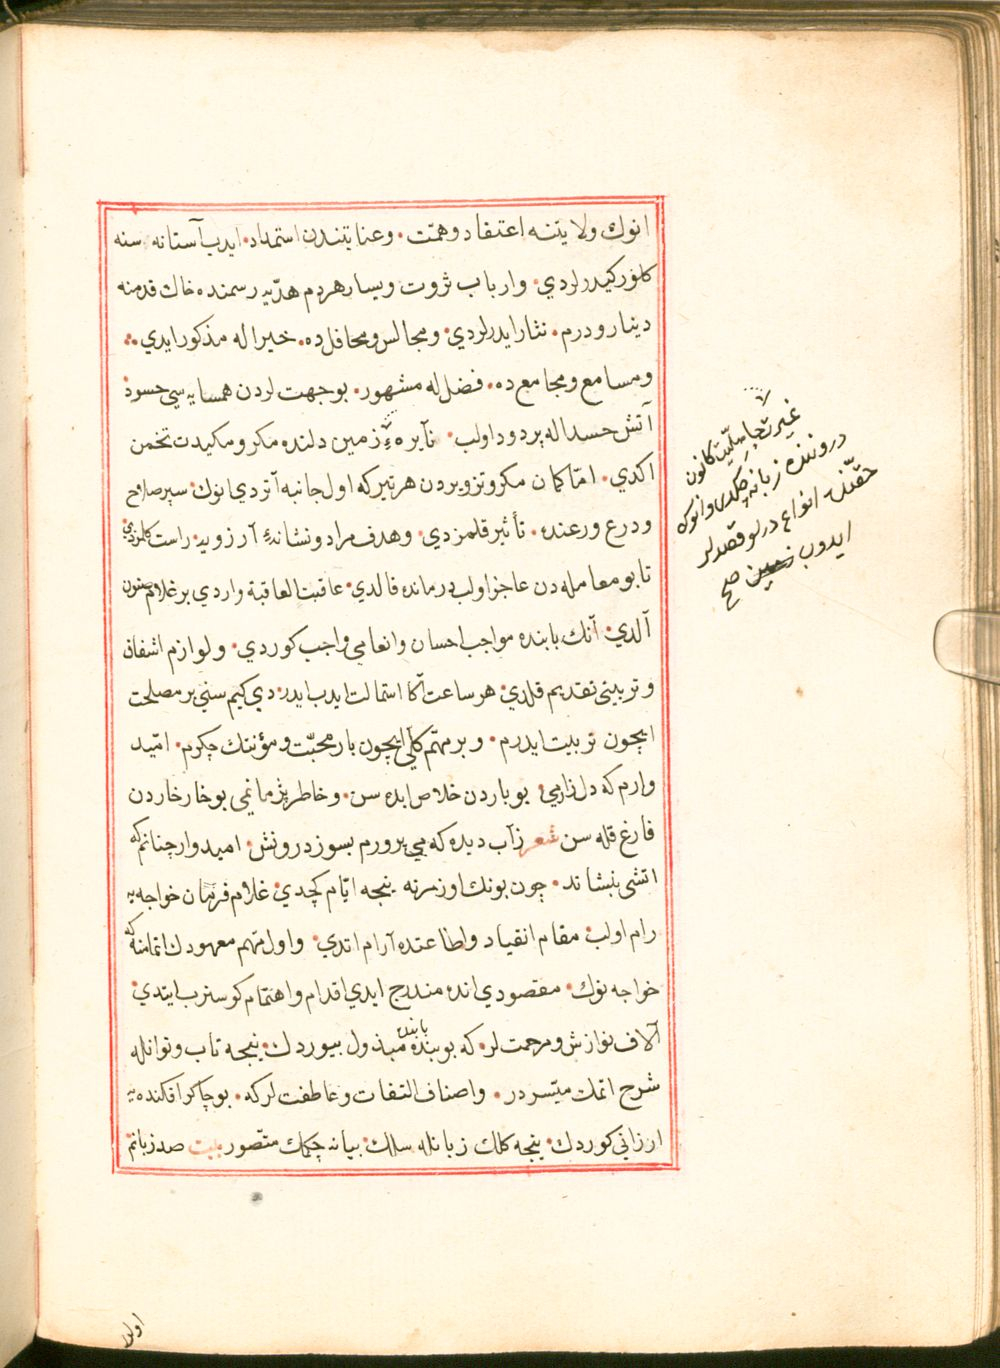 انوك ولايتنه اعتقاد وهمّت. وعنايتندن استمداد. ايدب آستانه سنه
كلور كيدرلردي. وارباب ثروت ويسار هردم هدّيه رسمنده خاك قدمنه
دينار ودرم. نثار ايدرلردي. ومجالس ومحافل ده. خيرا له مذكور ايدي.
ومسامع ومجامع ده. فضل له مشهور. بوجهت لردن همسايه سي حسود
آتش حسد اله پر دود اولب. نآيره ءِ زمين دلنده مكر ومكيدت تخمن
اكدي. امّا كمان مكر وتزويردن هر تير كه اول جانبه آتردي انوك. سپر صلاح
ودرع ورعنده. تأثير قلمزدي. وهدف مراد ونشانهٔ آرزويه. راست كلمزدي
تا بو معامله دن عاجز اولب درمانده قالدي. عاقبت العاقبة واردي بر غلام صتون
آلدي. آنك بابنده مواجب احسان وانعامي واجب كوردي. ولوازم اشفاق
وتربيتى تقديم قلدي. هر ساعت اكا استمالت ايدب ايدردي كيم سني بر مصلحت
ايچون تربيت ايدرم. وبر مهمّ كلّي ايچون بار محبّت ومؤنتك چكرم. اميّد
وارم كه دل زارمي. بو باردن خلاص ايده سن. وخاطر پژمانمي بو خارخاردن
فارغ قله سن شعر زآب ديده كه مي پرورم بسوز درونش. اميدوار چنانم كه
اتشى بنشاند. چون بونك اوزرنه نيجه ايّام كچدي. غلام فرمان خواجه يه
رام اولب. مقام انقياد واطاعتده آرام اتدي. واول مهم معهودك اتمامنه كه
خواجه نوك. مقصودي انده مندرج ايدي اقدام واهتمام كوسترب ايتدي.
آلاف نوازش ومرحمت لر. كه بو بنده بابنده مبذول بيوردك. نيجه تاب وتوانله
شرح اتمك ميّسر در. واصناف التفات وعاطفت لر كه. بو چاكر افكنده يه
ارزاني كوردك. نيجه كلك زبانله سلك. بيانه چكمك متّصور بيت صد زبانم
غير تچاهليّت كانون
دروننده زبانه چكدى وانوك
حقّنده انواع درلو قصدلر
ايدوب زمين صح
اولور